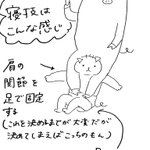 寝技は
こんな感じ
肩の
関節を
足で固定
する
(これを決めるまでが大変だが
決めてしまえばこっちのもん)